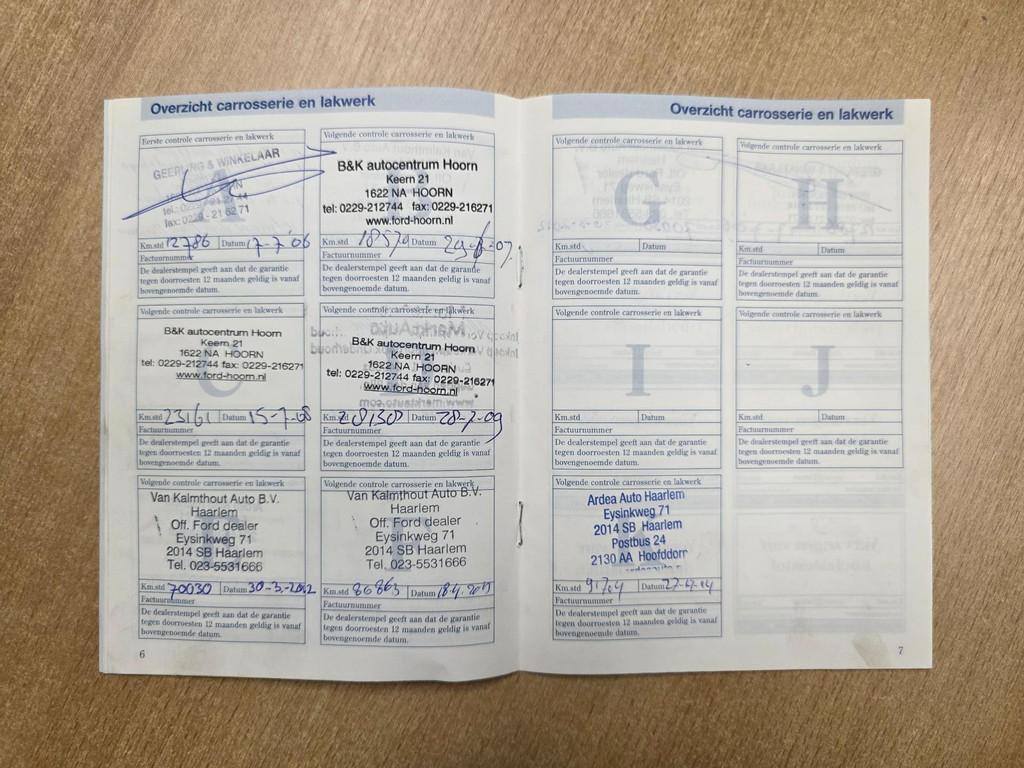 Overzicht carrosserie en lakwerk
Eerste controle carrosserie en lakwerk
GEERLING & WINKELAAR
Km.std 12786 Datum 17-7-'06
Factuurnummer
De dealerstempel geeft aan dat de garantie
tegen doorroesten 12 maanden geldig is vanaf
bovengenoemde datum.
Volgende controle carrosserie en lakwerk
B&K autocentrum Hoorn
Keern 21
1622 NA HOORN
tel: 0229-212744 fax: 0229-216271
www.ford-hoorn.nl
Km.std Datum
Factuurnummer
De dealerstempel geeft aan dat de garantie
tegen doorroesten 12 maanden geldig is vanaf
bovengenoemde datum.
Volgende controle carrosserie en lakwerk
B&K autocentrum Hoorn
Keern 21
1622 NA HOORN
tel: 0229-212744 fax: 0229-216271
www.ford-hoorn.nl
Km.std 23161 Datum 15-7-08
Factuurnummer
De dealerstempel geeft aan dat de garantie
tegen doorroesten 12 maanden geldig is vanaf
bovengenoemde datum.
Volgende controle carrosserie en lakwerk
B&K autocentrum Hoorn
Keern 21
1622 NA HOORN
tel: 0229-212744 fax: 0229-216271
www.ford-hoorn.nl
Km.std 28130 Datum 28-7-09
Factuurnummer
De dealerstempel geeft aan dat de garantie
tegen doorroesten 12 maanden geldig is vanaf
bovengenoemde datum.
Volgende controle carrosserie en lakwerk
Van Kalmthout Auto B.V.
Haarlem
Off. Ford dealer
Eysinkweg 71
2014 SB Haarlem
Tel. 023-5531666
Km.std 70030 Datum 30-3-2012
Factuurnummer
De dealerstempel geeft aan dat de garantie
tegen doorroesten 12 maanden geldig is vanaf
bovengenoemde datum.
Volgende controle carrosserie en lakwerk
Van Kalmthout Auto B.V.
Haarlem
Off. Ford dealer
Eysinkweg 71
2014 SB Haarlem
Tel. 023-5531666
Km.std 86863 Datum
Factuurnummer
De dealerstempel geeft aan dat de garantie
tegen doorroesten 12 maanden geldig is vanaf
bovengenoemde datum.
6
Overzicht carrosserie en lakwerk
Volgende controle carrosserie en lakwerk
G
Km.std Datum
Factuurnummer
De dealerstempel geeft aan dat de garantie
tegen doorroesten 12 maanden geldig is vanaf
bovengenoemde datum.
Volgende controle carrosserie en lakwerk
H
Km.std Datum
Factuurnummer
De dealerstempel geeft aan dat de garantie
tegen doorroesten 12 maanden geldig is vanaf
bovengenoemde datum.
Volgende controle carrosserie en lakwerk
I
Km.std Datum
Factuurnummer
De dealerstempel geeft aan dat de garantie
tegen doorroesten 12 maanden geldig is vanaf
bovengenoemde datum.
Volgende controle carrosserie en lakwerk
J
Km.std Datum
Factuurnummer
De dealerstempel geeft aan dat de garantie
tegen doorroesten 12 maanden geldig is vanaf
bovengenoemde datum.
Volgende controle carrosserie en lakwerk
Ardea Auto Haarlem
Eysinkweg 71
2014 SB Haarlem
Postbus 24
2130 AA Hoofddorp
Km.std Datum
Factuurnummer
De dealerstempel geeft aan dat de garantie
tegen doorroesten 12 maanden geldig is vanaf
bovengenoemde datum.
7